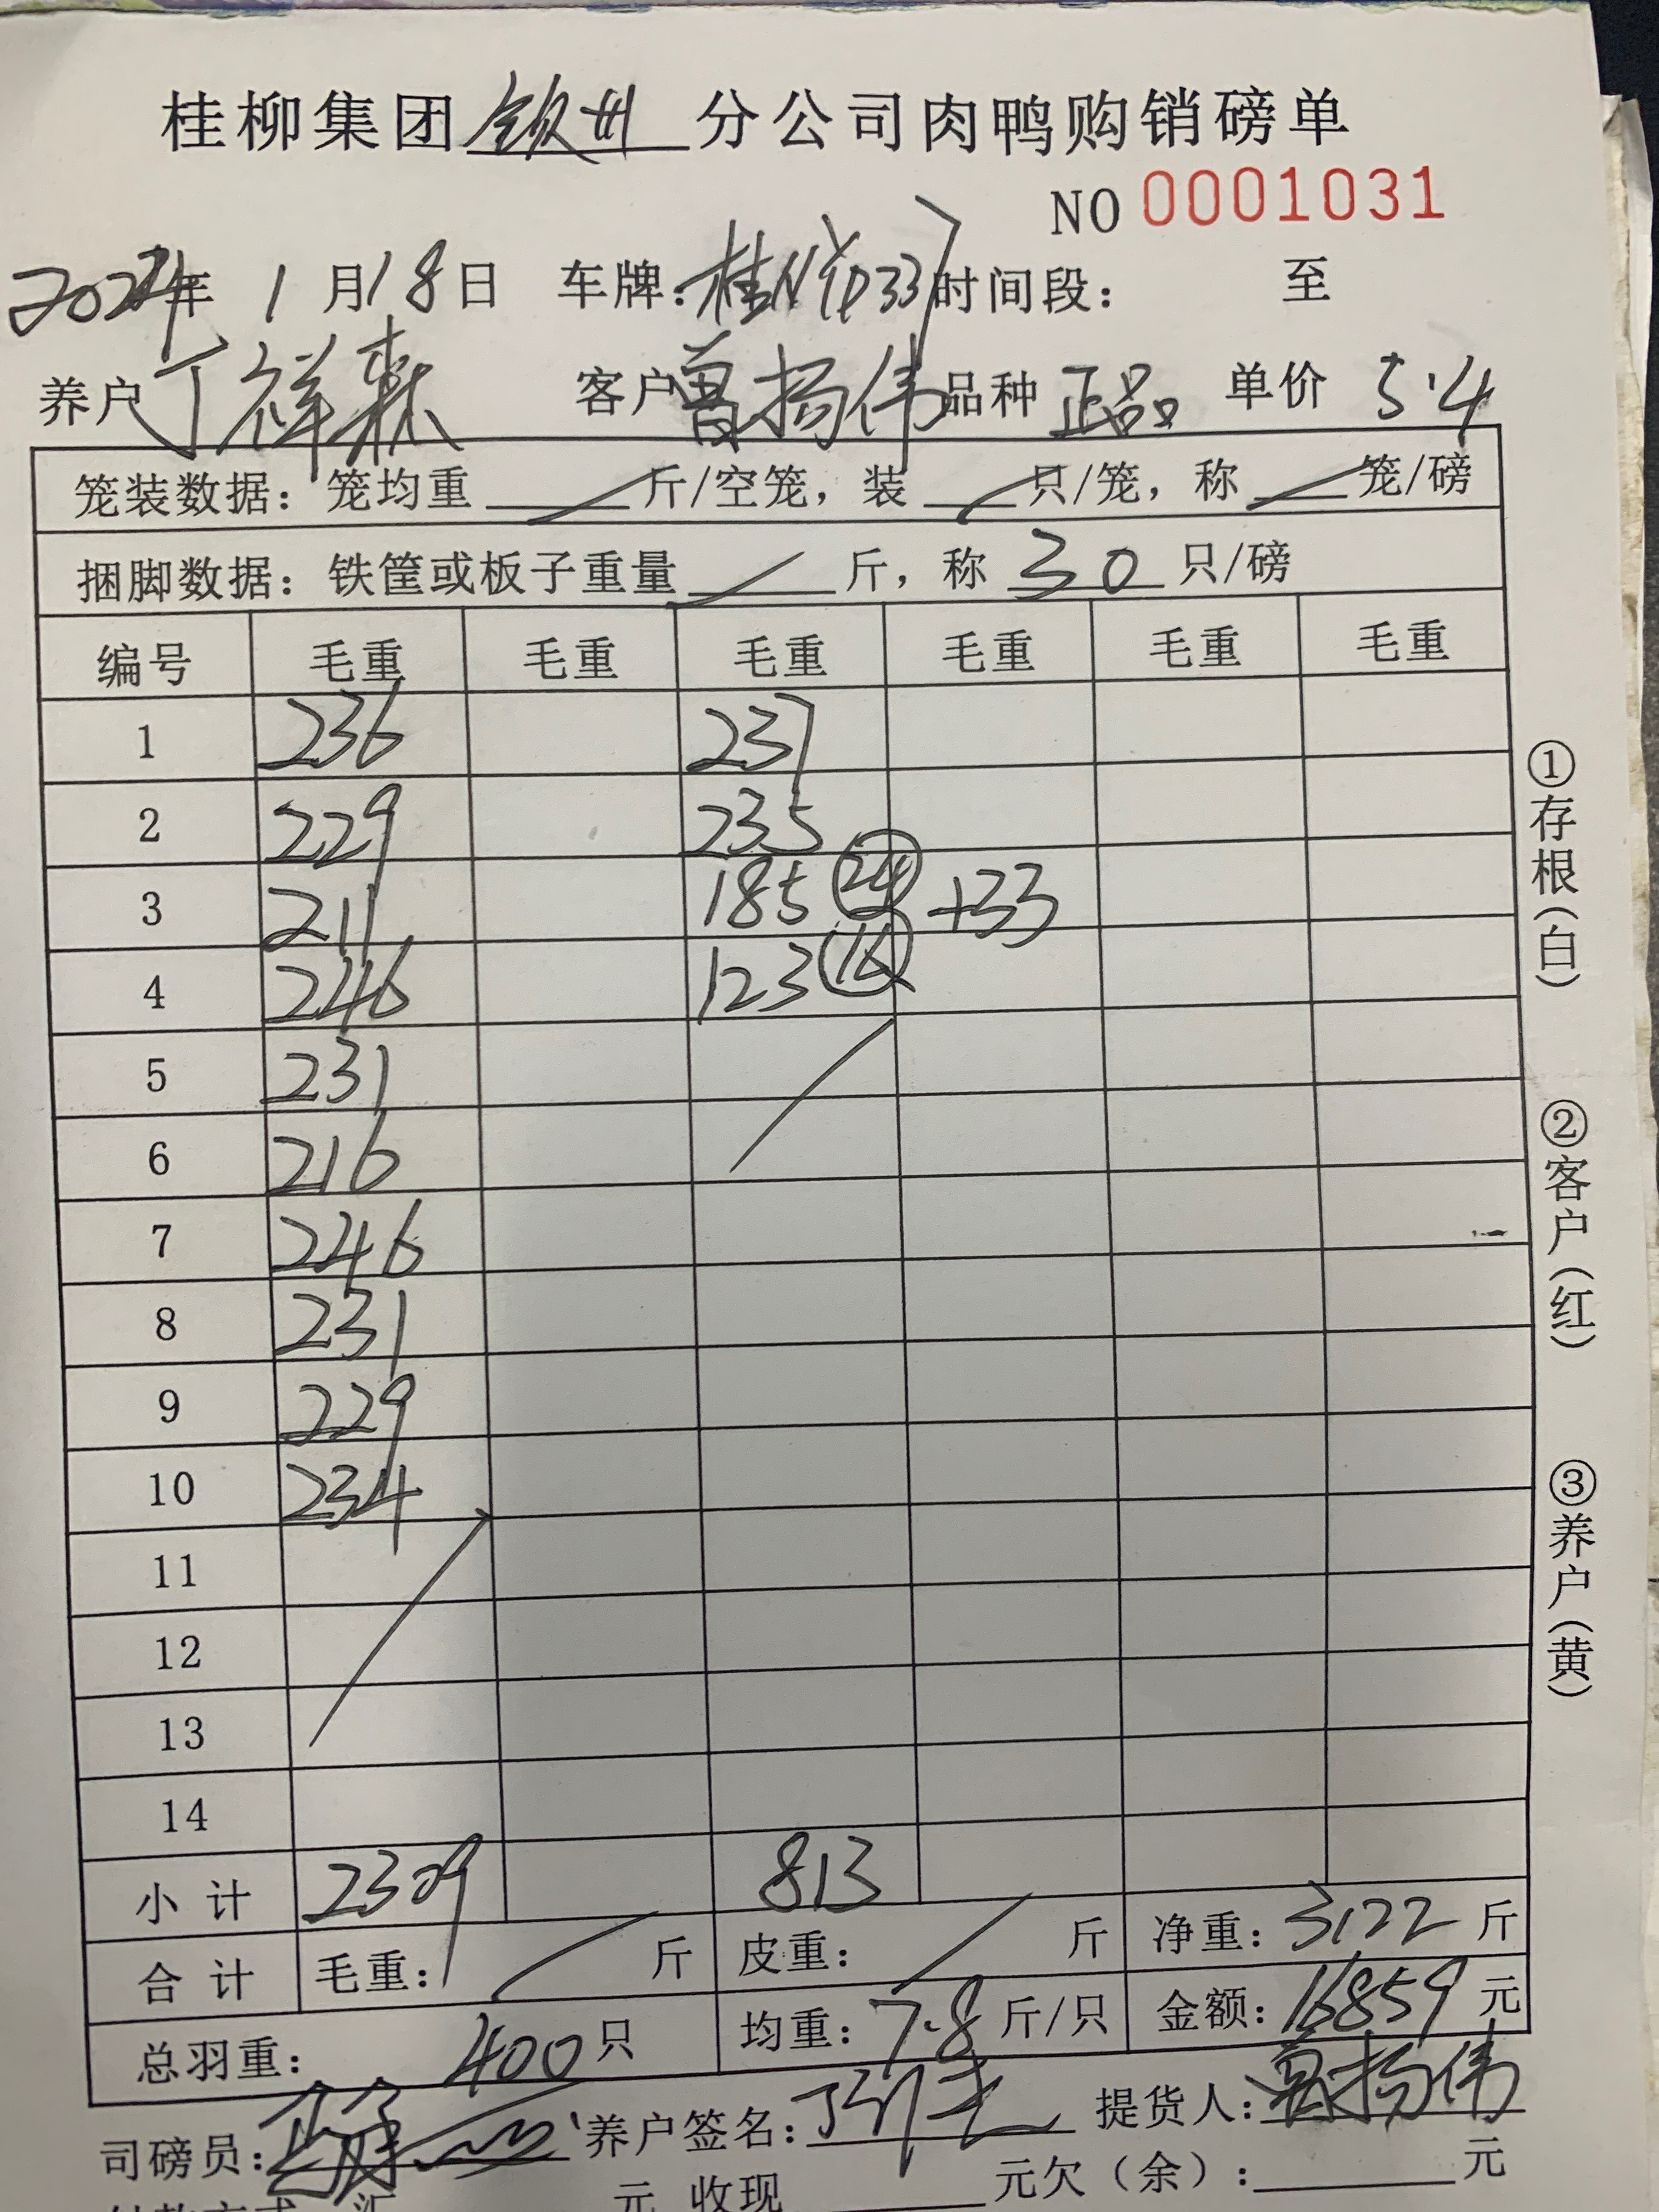 桂柳集团钦州分公司肉鸭购销磅单
NO 0001031
2024年 1月18日 车牌: 时间段: 至
养户丁祥森 客户曾扬伟 品种 正品 单价 5.4
笼装数据: 笼均重 斤/空笼, 装 只/笼, 称 笼/磅
捆脚数据: 铁筐或板子重量 斤, 称 30 只/磅
编号 毛重 毛重 毛重 毛重 毛重 毛重
1 236 237
2 229 235
3 211 185 24 +33
4 246 123 16
5 231
6 216
7 246
8 231
9 229
10 234
11
12
13
14
小计 2309 813
合计 毛重: 斤 皮重: 斤 净重: 3122 斤
总羽重: 400只 均重: 7.8斤/只 金额: 16859元
司磅员: 养户签名: 提货人: 曾扬伟
元 收现 元欠(余): 元
①存根(白)
②客户(红)
③养户(黄)